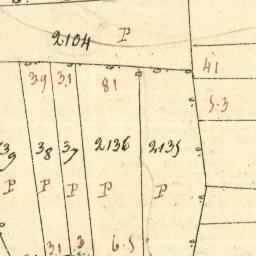 2104 P
39 31 81 41
5.3
39 38 37 2136 2135
P P P P P
31 6.5